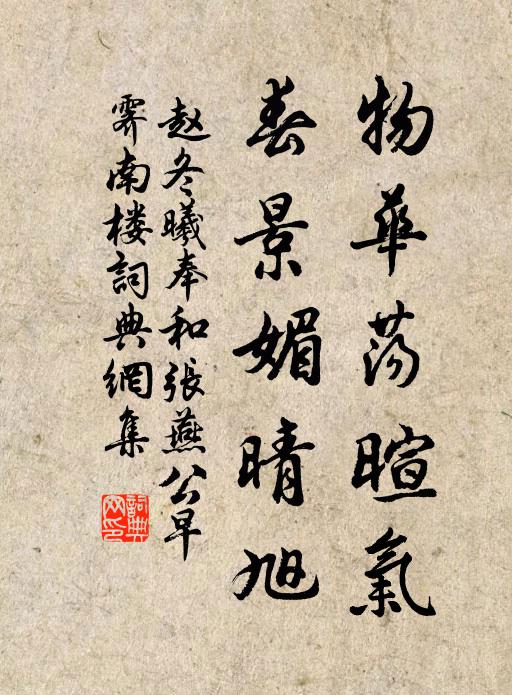 物華蕩暄氣
春景媚晴旭
赵冬曦奉和張燕公早
霽南楼詞典網集
詞典網印